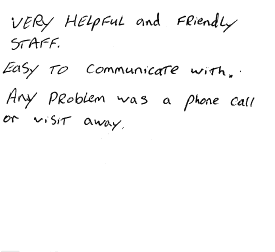 VERY HELPFUL and FRIENDLY
STAFF.
EASY TO COMMUNICATE WITH.
ANY PROBLEM WAS A PHONE CALL
OR VISIT AWAY.